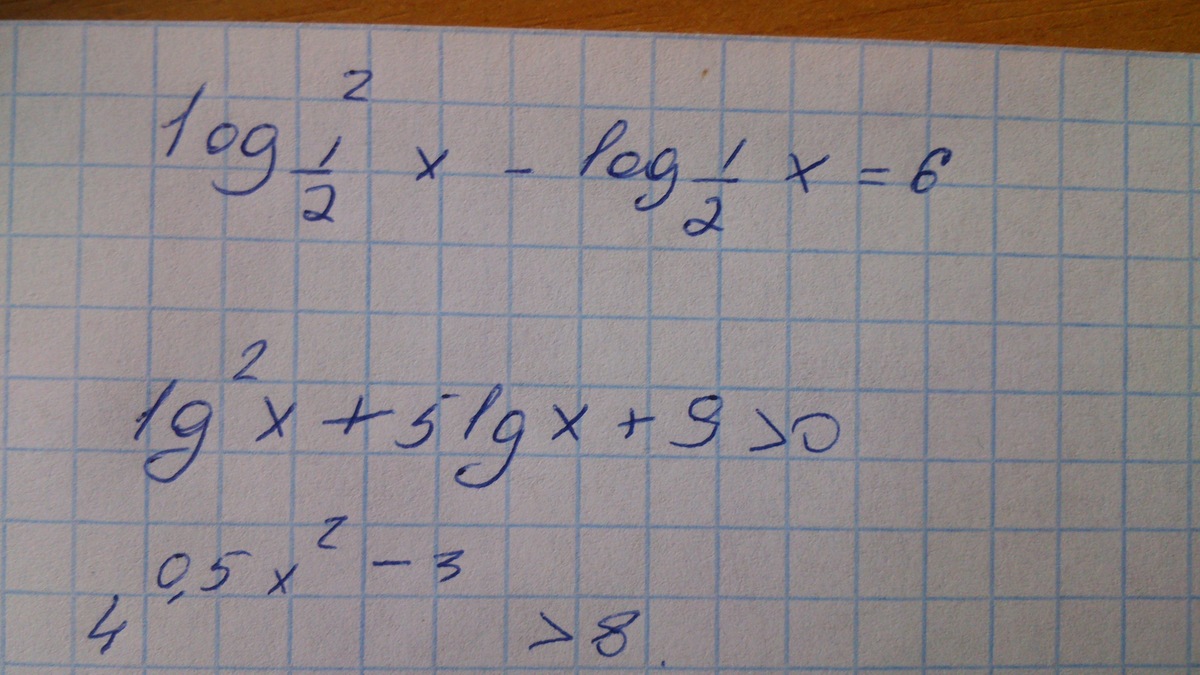 log²_{1/2} x - log_{1/2} x = 6
lg²x + 5 lg x + 9 > 0
4^{0,5x² - 3} > 8.